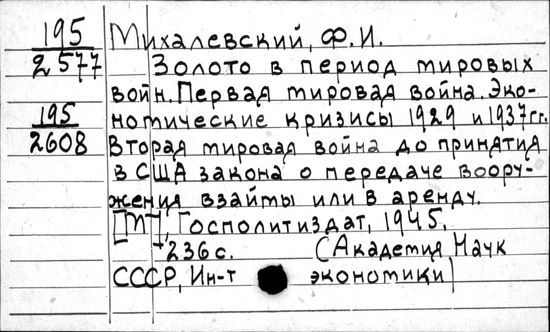 195 Михалевский, Ф.И.
2577 Золото в период мировых
войн. Первая мировая война. Эко-
195 номические кризисы 1929 и 1937 гг.
2608 Вторая мировая война до принятия
в США закона о передаче воору-
жения взаймы или в аренду.
[М], Госполитиздат, 1945.
236 с. (Академия Наук
СССР, Ин-т экономики)